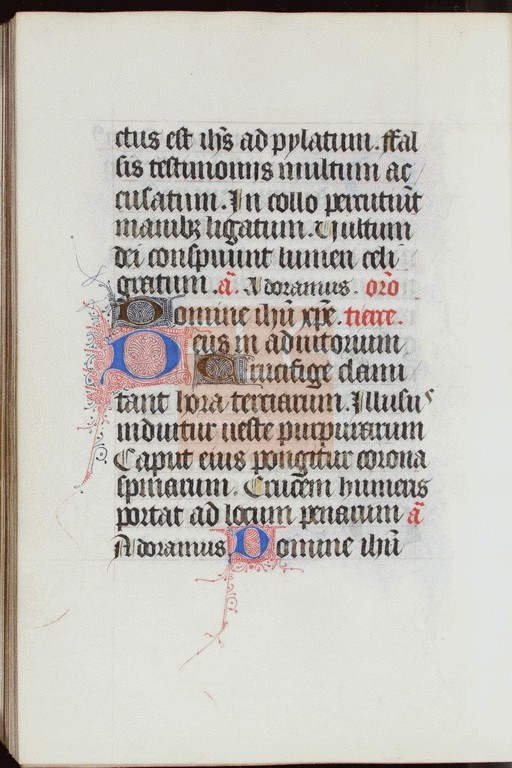 ctus est ihs̄ ad pylatum. ffal
sis testimoniis multum ac
cusatum. In collo percutiūt
manibꝫ ligatum. Vultum
dei conspuunt lumen celi
gratum. an̄. Adoramus. orō
Domine ihū xp̄e. tierce.
Deus in adiutorium
Crucifige clami
tant hora terciarum. Illusus
induitur ueste purpurarum
Caput eius pongitur corona
spinarum. Crucem humeris
portat ad locum penarum an̄
Adoramus Domine ihū